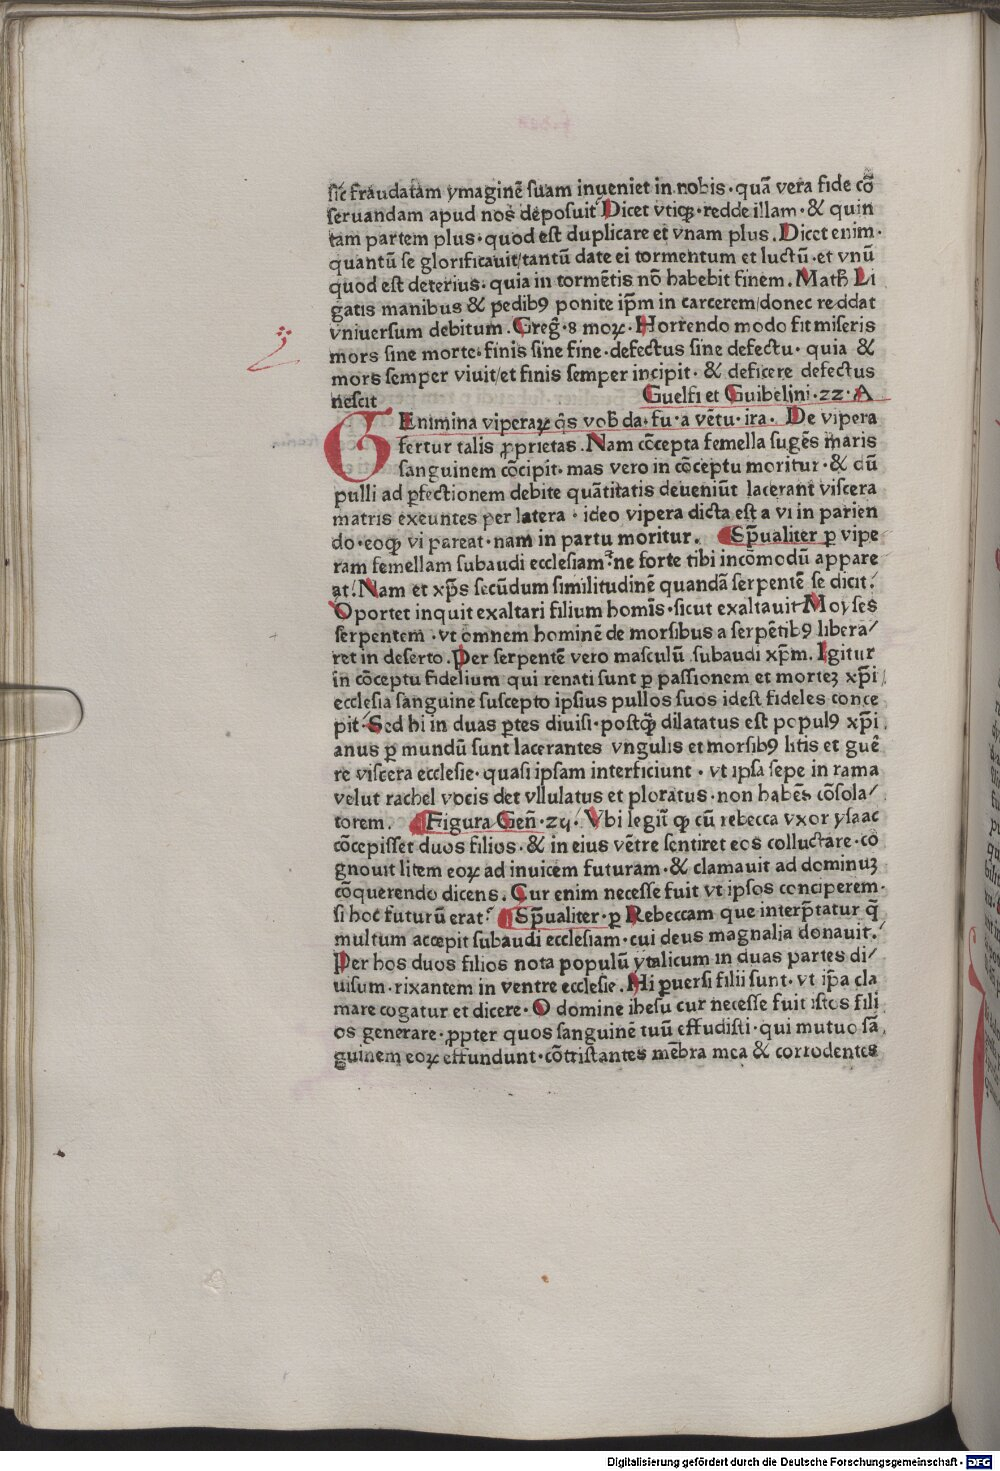 sic̃ fraudatam ymaginẽ suam inueniet in nobis · quã vera fide cõ
seruandam apud nos deposuit Dicet vtiqꝫ · redde illam · & quin
tam partem plus · quod est duplicare et vnam plus . Dicet enim ·
quantũ se glorificauit/tantũ date ei tormentum et luctũ · et vnũ
quod est deterius · quia in tormẽtis nõ habebit finem . Matħ Li
gatis manibus & pedibꝯ ponite ip̃m in carcerem/donec reddat
vniuersum debitum . Greg̃ · 8 moꝝ · Horrendo modo fit miseris
mors sine morte · finis sine fine · defectus sine defectu · quia &
mors semper viuit/et finis semper incipit · & deficere defectus
nescit Guelfi et Guibelini · 22 · A
GEnimina viperaꝝ q̃s vob̃ da · fu · a vẽtu · ira . De vipera
fertur talis ꝓprietas . Nam cõcepta femella sugẽs maris
sanguinem cõcipit · mas vero in cõceptu moritur · & dũ
pulli ad ꝑfectionem debite quãtitatis deueniũt lacerant viscera
matris exeuntes per latera · ideo vipera dicta est a vi in parien
do · eoqꝫ vi pareat · nam in partu moritur . Sp̃ualiter ꝑ vipe
ram femellam subaudi ecclesiam · ne forte tibi incõmodũ appare
at · Nam et xp̃s secũdum similitudinẽ quandã serpentẽ se dicit ·
Oportet inquit exaltari filium homĩs · sicut exaltauit Moyses
serpentem · vt omnem hominẽ de morsibus a serpẽtibꝯ libera/
ret in deserto . Per serpentẽ vero masculũ subaudi xp̃m . Igitur
in cõceptu fidelium qui renati sunt ꝑ passionem et morteꝫ xp̃i
ecclesia sanguine suscepto ipsius pullos suos idest fideles conce
pit · Sed hi in duas ꝑtes diuisi · postqꝫ̃ dilatatus est populꝯ xp̃i
anus ꝑ mundũ sunt lacerantes vngulis et morsibꝯ litis et guẽ
re viscera ecclesie · quasi ipsam interficiunt · vt ipsa sepe in rama
velut rachel vocis det vllulatus et ploratus · non habẽs cõsola/
torem . Figura Geñ · 25 · Vbi legiť qꝫ cũ rebecca vxor ysaac
cõcepisset duos filios · & in eius vẽtre sentiret eos colluctare · co
gnouit litem eoꝝ ad inuicem futuram · & clamauit ad dominuꝫ
cõquerendo dicens . Cur enim necesse fuit vt ipsos conciperem ·
si hoc futurũ erat · Sp̃ualiter · ꝑ Rebeccam que interp̃tatur q̃
multum accepit subaudi ecclesiam · cui deus magnalia donauit .
Per hos duos filios nota populũ ytalicum in duas partes di/
uisum · rixantem in ventre ecclesie . Hi ꝑuersi filii sunt · vt ip̃a cla
mare cogatur et dicere · O domine ihesu cur necesse fuit istos fili
os generare · ꝓpter quos sanguinẽ tuũ effudisti · qui mutuo sã
guinem eoꝝ effundunt · cõtristantes mẽbra mea & corrodentes
Digitalisierung gefördert durch die Deutsche Forschungsgemeinschaft - DFG